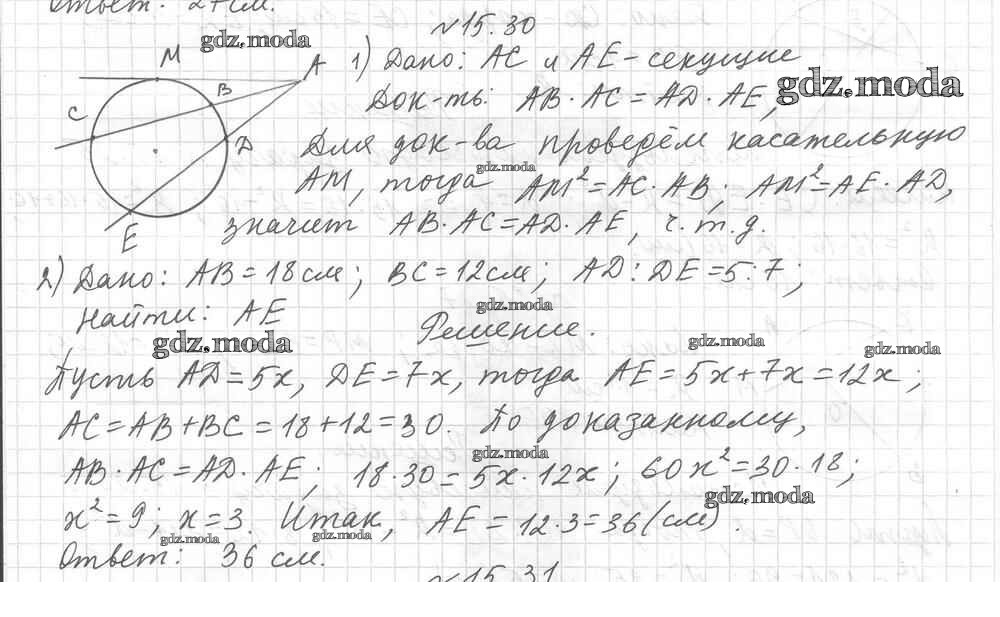 Ответ: 24 см.
№15.30
gdz.moda
M
A
B
C
D
E
1) Дано: AC и AE - секущие
gdz.moda
Док-ть: AB · AC = AD · AE,
Для док-ва проведём касательную
gdz.moda
AM, тогда AM² = AC · AB; AM² = AE · AD,
значит AB · AC = AD · AE, ч.т.д.
2) Дано: AB = 18 см; BC = 12 см; AD : DE = 5 : 7;
Найти: AE
gdz.moda
Решение.
gdz.moda
gdz.moda
gdz.moda
Пусть AD = 5x, DE = 7x, тогда AE = 5x + 7x = 12x;
AC = AB + BC = 18 + 12 = 30. По доказанному,
gdz.moda
AB · AC = AD · AE; 18 · 30 = 5x · 12x; 60x² = 30 · 18;
gdz.moda
x² = 9; x = 3. Итак, AE = 12 · 3 = 36 (см).
gdz.moda
gdz.moda
Ответ: 36 см.
№15.31